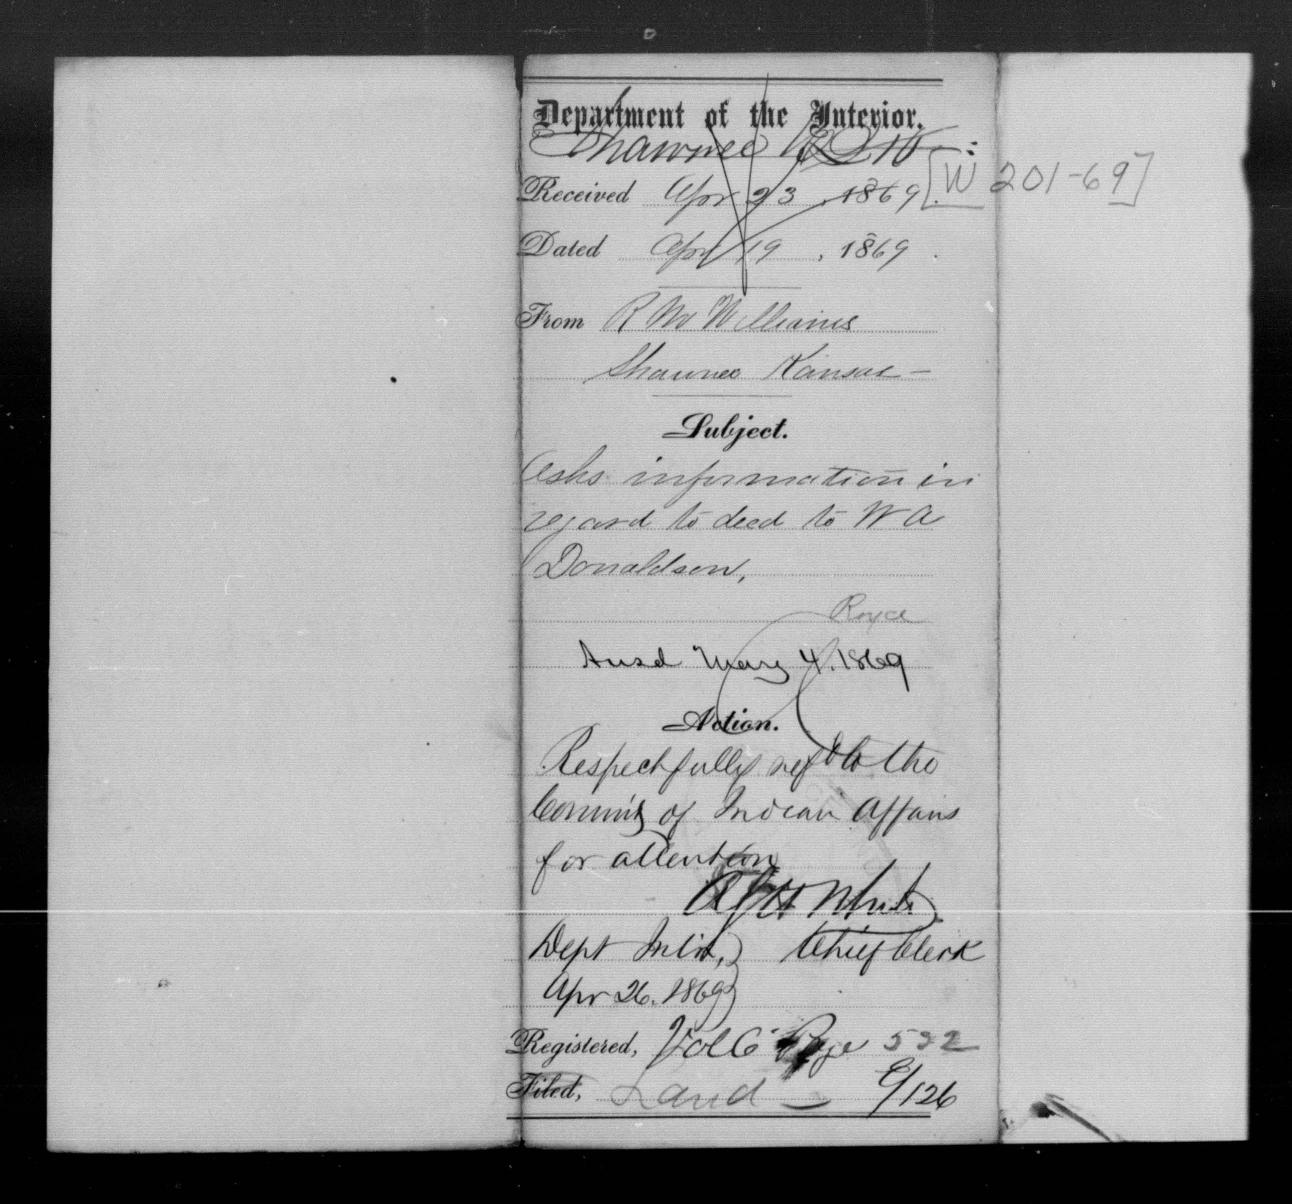 Department of the Interior.
Shawnee
[W 201-69]
Received Apr 23, 1869.
Dated Apr 19, 1869.
From R W Williams
Shawnee Kansas —
Subject.
Asks information in
regard to deed to W A
Donaldson,
Royce
Ansd May 4. 1869
Action.
Respectfully refd to the
Commr of Indian Affairs
for attention
Dept Intr, Chief Clerk
Apr 26. 1869
Registered, Vol 6 Page 532
Filed, Land — 126